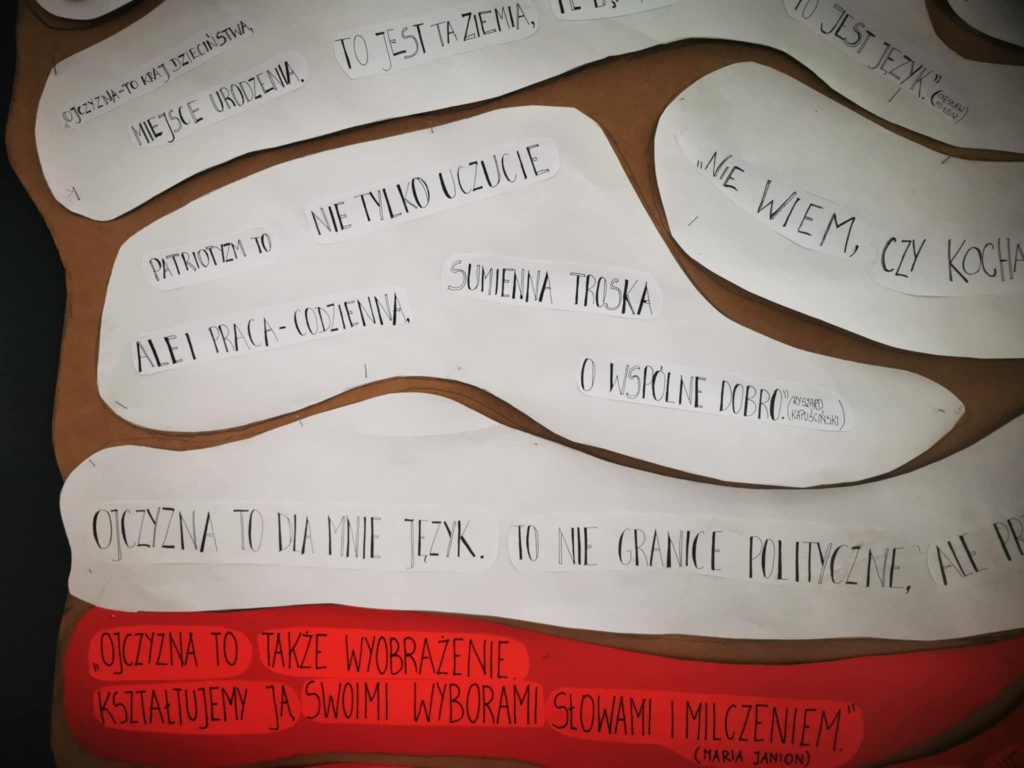 „OJCZYZNA-TO KRAJ DZIECIŃSTWA,
MIEJSCE URODZENIA.
TO JEST TA ZIEMIA,
TO JEST JĘZYK." (CZESŁAW MIŁOSZ)
PATRIOTYZM TO NIE TYLKO UCZUCIE
ALE I PRACA-CODZIENNA,
SUMIENNA TROSKA
O WSPÓLNE DOBRO." (RYSZARD KAPUŚCIŃSKI)
„NIE WIEM, CZY KOCHA
OJCZYZNA TO DLA MNIE JĘZYK. TO NIE GRANICE POLITYCZNE, ALE
„OJCZYZNA TO TAKŻE WYOBRAŻENIE.
KSZTAŁTUJEMY JĄ SWOIMI WYBORAMI SŁOWAMI I MILCZENIEM."
(MARIA JANION)